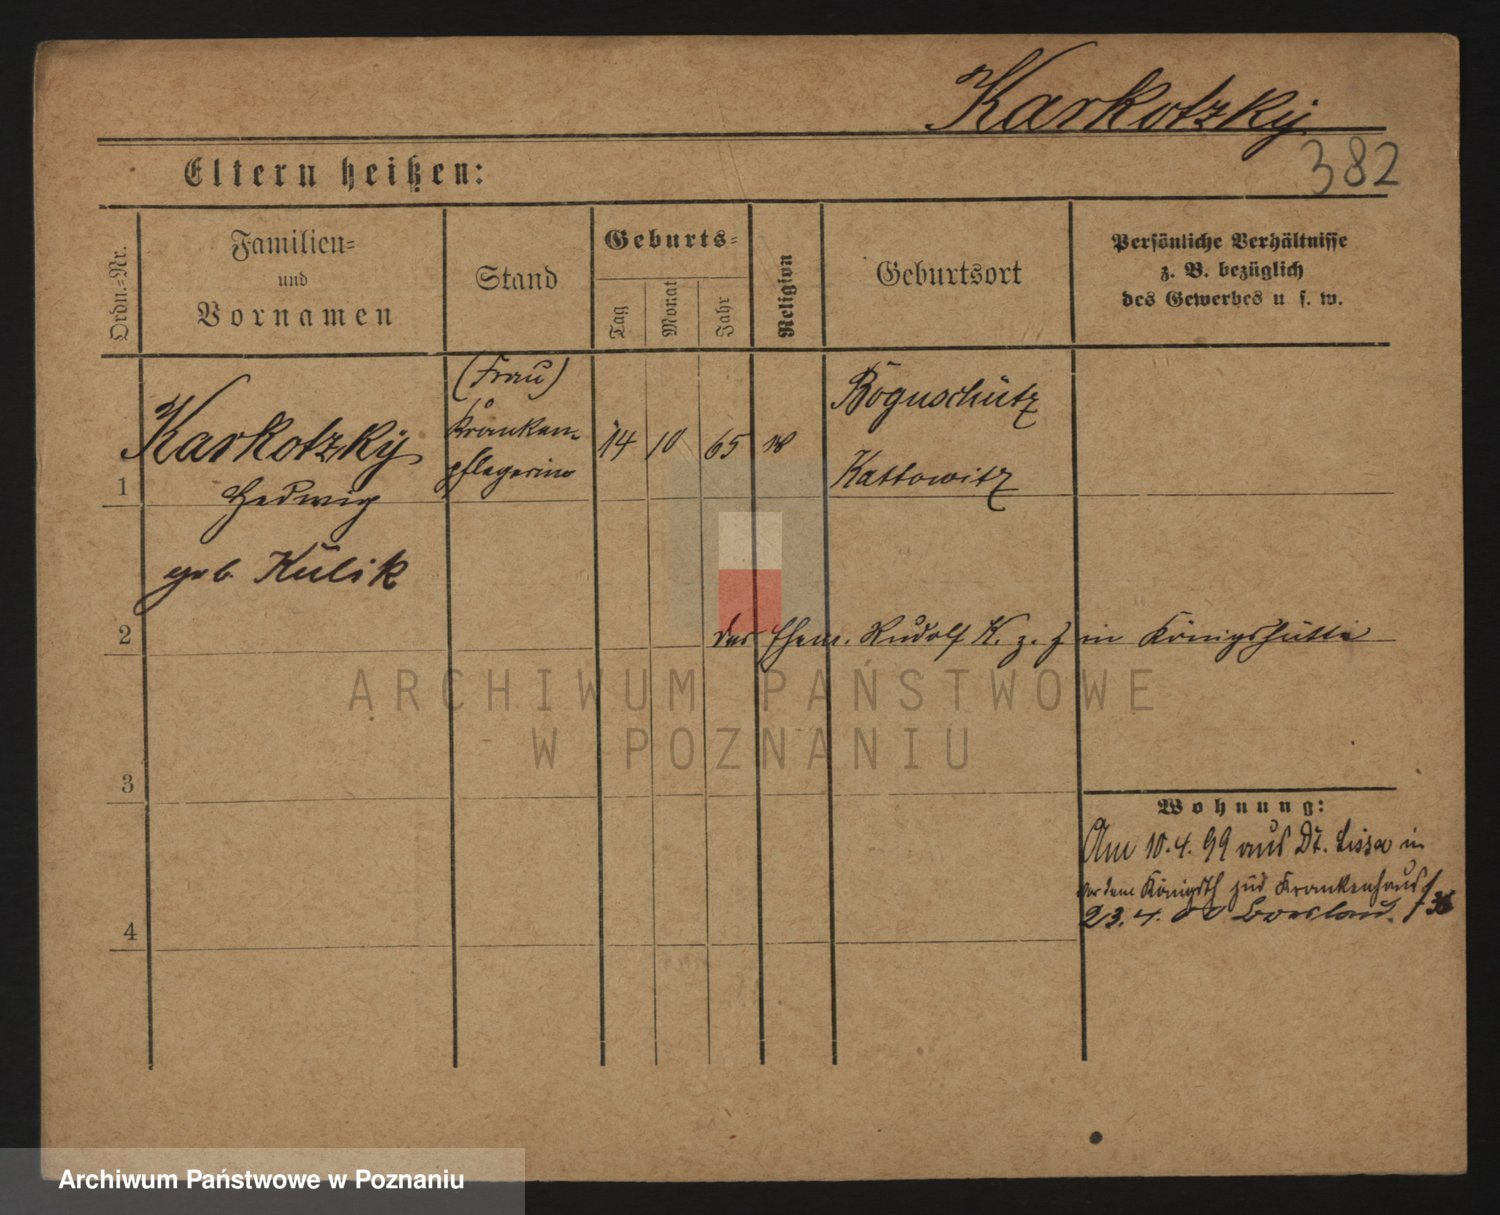 Karkotzky
382
Eltern heißen:
Ordn.-Nr.
Familien-
und
Vornamen
Stand
Geburts-
Tag
Monat
Jahr
Religion
Geburtsort
Persönliche Verhältnisse
z. B. bezüglich
des Gewerbes u s. w.
1
Karkotzky
Hedwig
geb. Kulik
(Frau)
Kranken-
pflegerin
14
10
65
Boguschütz
Kattowitz
2
der Ehem. Rudolf K. z. Z in Königshütte
ARCHIWUM PAŃSTWOWE
W POZNANIU
3
Wohnung:
Am 10.4.99 aus Dt. Lissa in
vor dem Königsth Krankenhaus
23.4.
4
Archiwum Państwowe w Poznaniu